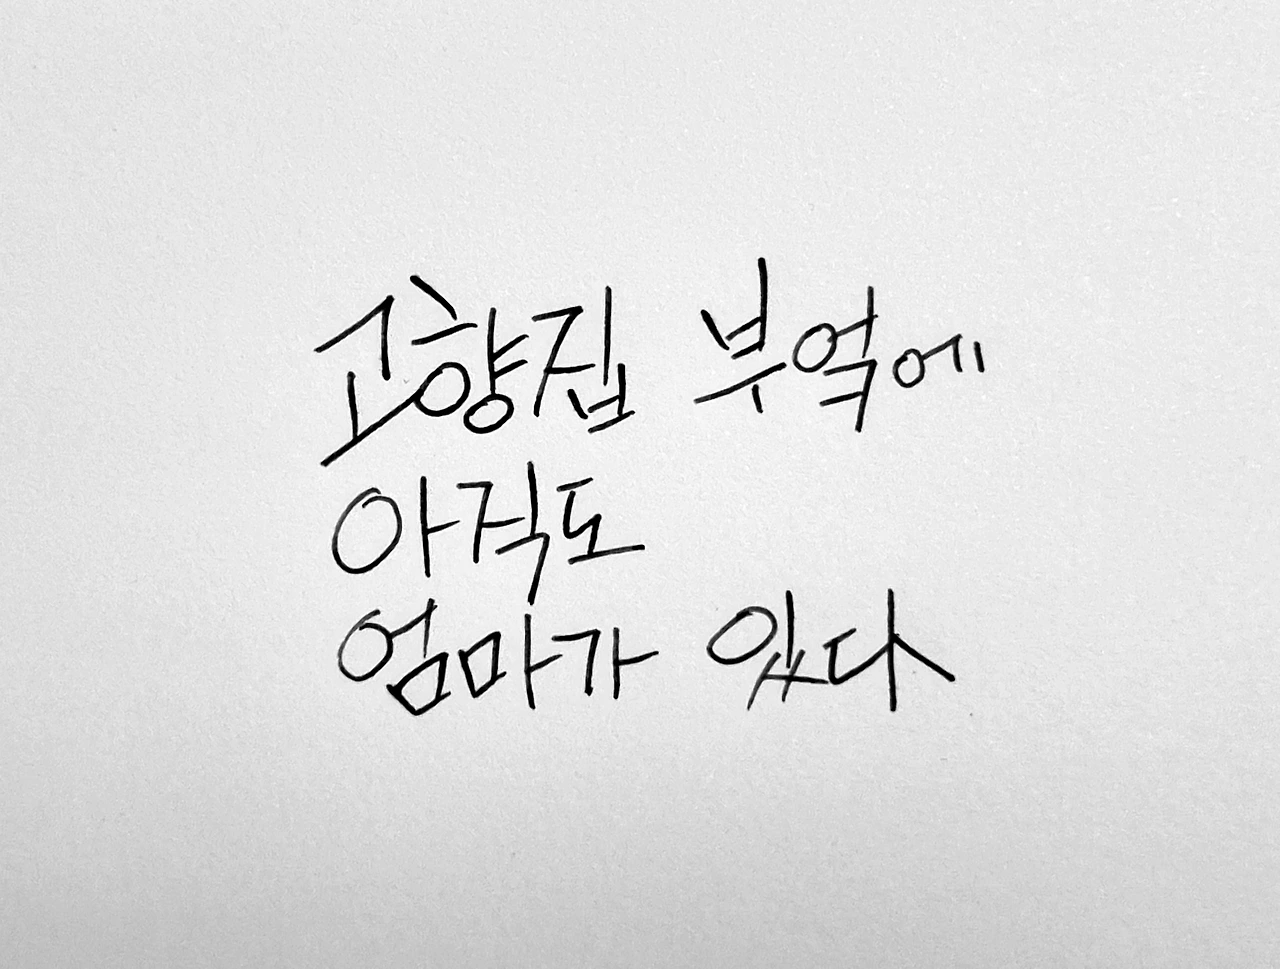 고향집 부엌에
아직도
엄마가 있다